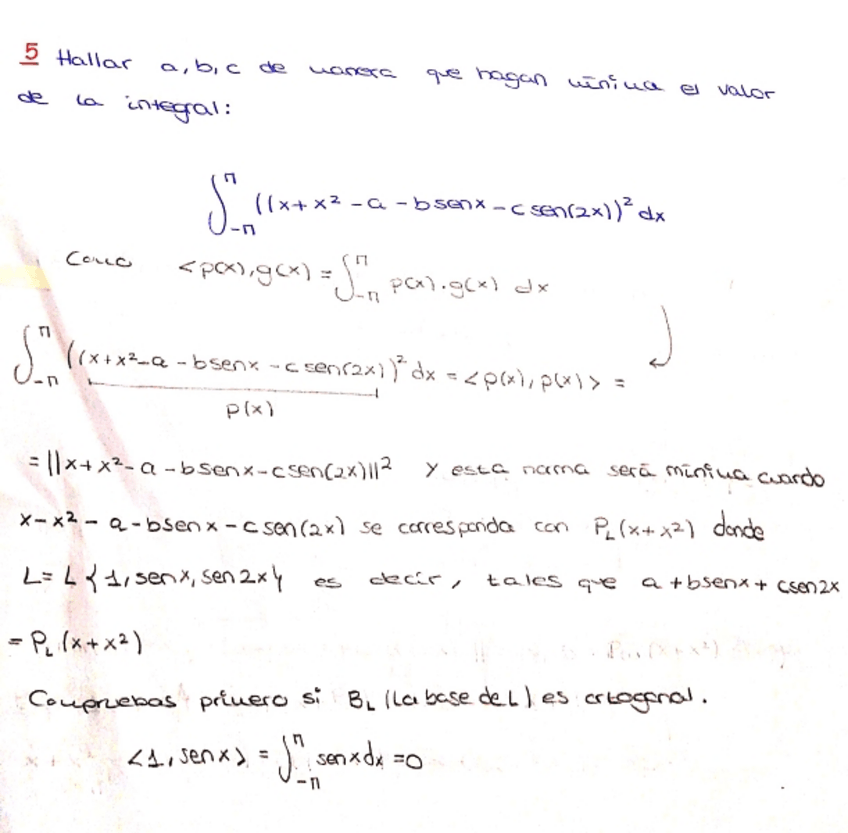 5 Hallar a, b, c de manera que hagan mínima el valor
de la integral:
∫_{-π}^{π} ((x+x² - a - b senx - c sen(2x))² dx
Como <p(x), g(x) = ∫_{-π}^{π} p(x)·g(x) dx
∫_{-π}^{π} ((x+x² - a - b senx - c sen(2x))² dx = <p(x), p(x)> =
p(x)
= ||x+x² - a - b senx - c sen(2x)||² y esta norma será mínima cuando
x-x² - a - b senx - c sen(2x) se corresponda con P_L (x+x²) donde
L = L{1, senx, sen2x} es decir, tales que a + b senx + c sen2x
= P_L (x+x²)
Compruebas primero si B_L (La base de L) es ortogonal.
<1, senx> = ∫_{-π}^{π} senx dx = 0